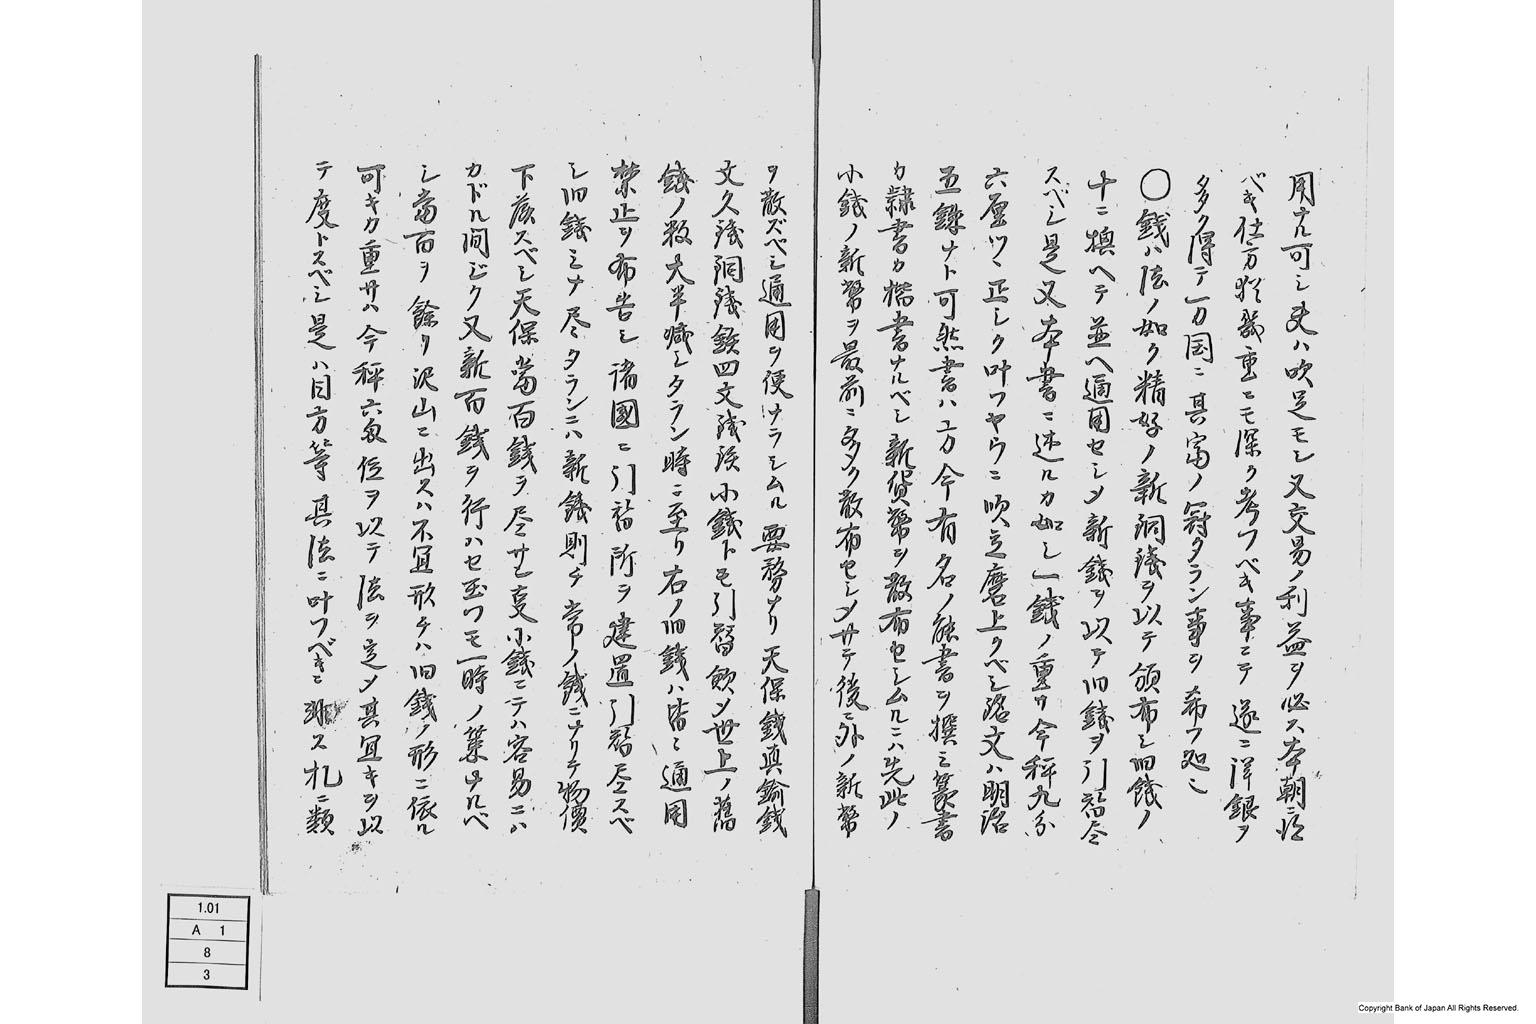 用ル可シ又ハ吹足モシ又交易ノ利益ヲ必ス本朝ニ
ベキ仕方幾重ニモ深ク考フベキ事ニテ遂ニ洋銀ヲ
多ク得テ一カ国ニ其富ノ冠タラン事ヲ希フ処ニ
〇銭ハ法ノ如ク精好ノ新洞銭ヲ以テ頒布シ旧銭ノ
十ニ換ヘテ並ヘ通用セシメ新銭ヲ以テ旧銭ヲ引替尽
スベシ是又本書ニ述ルカ如シ一銭ノ重サ今秤九分
六厘ツヽ正シク叶フヤウニ吹立磨上クベシ銘文ハ明治
五銖ナト可然書ハ方今有名ノ能書ヲ撰ミ篆書
カ隷書カ楷書ナルベシ新貨幣ヲ散布セシムルニハ先此ノ
小銭ノ新幣ヲ最前ニ多ク散布セシメサテ後ニ外ノ新幣
ヲ散ズベシ通用ヲ便ナラシムル要務ナリ天保銭真鍮銭
文久銭洞銭鉄四文銭小銭トモ引替飲メ世上ノ旧
銭ノ数大半減シタラン時ニ至リ右ノ旧銭ハ皆ニ通用
禁止ヲ布告シ諸國ニ引替所ヲ建置引替尽スベ
シ旧銭ミナ尽タランニハ新銭則チ常ノ銭ニナリテ物價
下落スベシ天保當百銭ヲ尽サセ小銭ニテハ容易ニハ
カドル間ジク又新百銭ヲ行ハセ玉フモ一時ノ策ナルベ
シ當百ヲ餘リ沢山ニ出スハ不冝形チハ旧銭ノ形ニ依ル
可キカ重サハ今秤六匁位ヲ以テ法ヲ定メ其冝キヲ以
テ度トスベシ是ハ目方等其法ニ叶フベキニ非ス札ニ類
1.01
A 1
8
3
Copyright Bank of Japan All Rights Reserved.